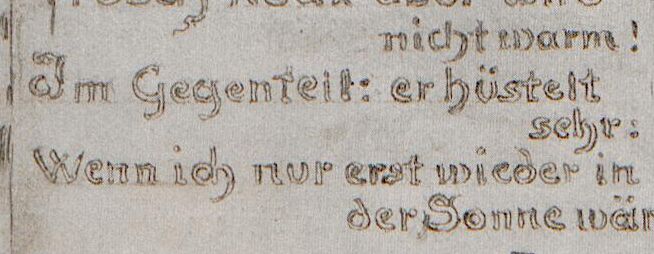 nicht warm!
Im Gegenteil: er hüstelt
sehr:
Wenn ich nur erst wieder in
der Sonne wär